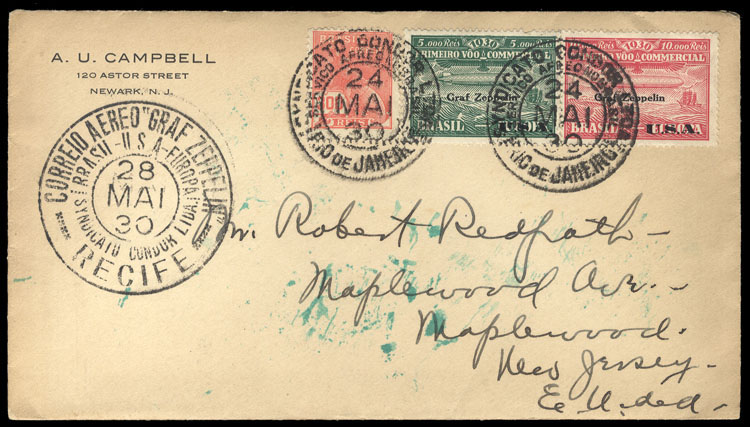 A. U. CAMPBELL
120 ASTOR STREET
NEWARK, N. J.
BRASIL
5.000 Reis 1930 5.000 Reis
PRIMEIRO VÔO COMMERCIAL
Graf Zeppelin
BRASIL U.S.A.
1930 10.000 Reis
VÔO COMMERCIAL
Graf Zeppelin
BRASIL U.S.A.
SYNDICATO CONDOR
SERVIÇO AEREO
24
MAI
30
RIO DE JANEIRO
SYNDICATO CONDOR
SERVIÇO AEREO
24
MAI
30
RIO DE JANEIRO
CORREIO AEREO "GRAF ZEPPELIN"
BRASIL-U.S.A-EUROPA
28
MAI
30
SYNDICATO CONDOR LTDA.
RECIFE
Robert Redpath
Maplewood Ave.
Maplewood.
New Jersey
E. U.